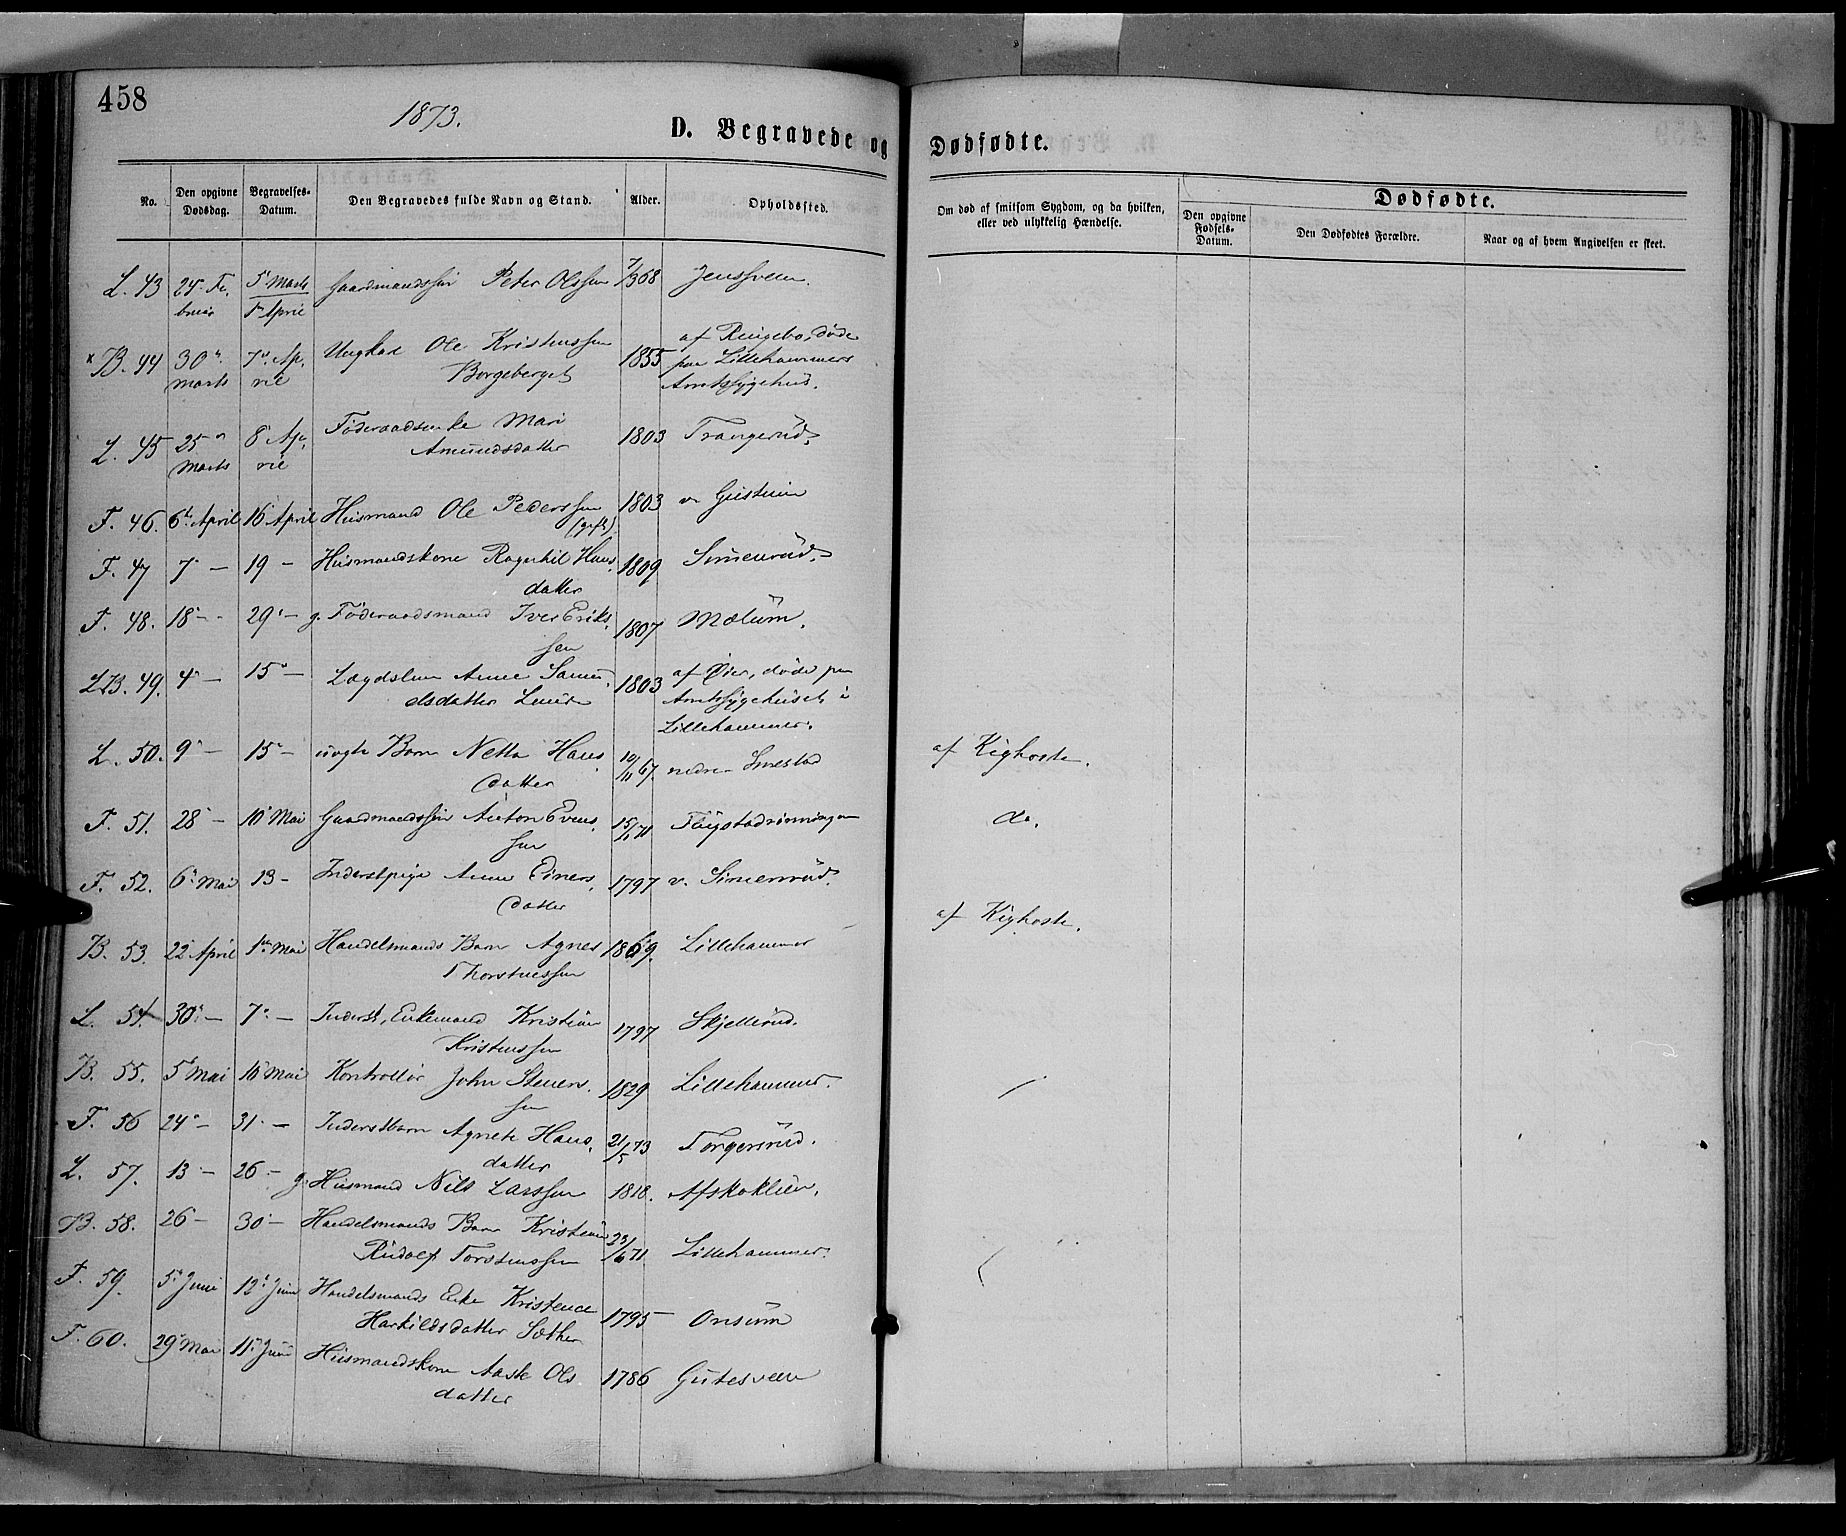 458
1873.
D. Begravede og Dødfødte.
No. Den opgivne Dødsdag. Begravelses-Datum. Den Begravedes fulde Navn og Stand. Alder. Opholdssted. Om død af smitsom Sygdom, og da hvilken, eller ved ulykkelig Hændelse. Dødfødte. Den opgivne Fødsels-Datum. Den Dødfødtes Forældre. Naar og af hvem Angivelsen er skeet.
L. 43 24 Fe, 5 Marts Gaardmandssøn Peter Olssen 7/3 68 Jenssveen.
bruar 1 April
x B. 44 30 7 Ap, Ungkar Ole Kristenssen 1855 af Ringebo, døde
marts ril Borgeberget paa Lillehammers
Amtssygehus.
L. 45 25 8 Ap, Føderaadsenke Mari 1803 Trangerud.
Marts ril Amundsdatter
F. 46. 6 April 16 April Husmand Ole Pederssen 1803 v.
(gift)
F. 47 7 – 19 – Husmandskone Ragnhil Hans, 1809 Simenrud.
datter
F. 48. 18 – 29 – g. Føderaadsmand Iver Eriks, 1807 Mælum.
sen
LB. 49. 4 – 15 – Lægdslem Anne Samu, 1803 af Øier, døde paa
elsdatter Amtssygehuset i
Lillehammer.
L. 50. 9 – 15 – uægte Barn Netta Hans, 10/11 67. nedre Smestad af Kighoste.
datter
F. 51. 28 – 10 Mai Gaardmandssøn Anton Evens, 15/ 71 do.
sen
F. 52. 6 Mai 13 – Inderstpige Anne Einers, 1797 v. Simenrud.
datter
B. 53. 22 April 1 Mai Handelsmands Barn Agnes 1869. Lillehammer af Kighoste.
Thorstenssen
L. 54. 30 – 7 – Inderst, Enkemand Kristian 1797 Skjellerud.
Kristenssen
B. 55. 5 Mai 10 Mai Kontrollør John Steners, 1829 Lillehammer.
sen
F. 56 24 – 31 – Inderstbarn Agnete Hans, 21/5 73 Torgersrud.
datter
L. 57. 13 – 26 – g. Husmand Nils Larssen 1818. Afskaklien.
B. 58. 26 – 30 – Handelsmands Barn Kristian 23/6 71 Lillehammer.
Rudolf Torstenssen
F. 59. 5 Juni 12 Juni Handelsmands Enke Kristence 1795 Onsum
Harkildsdatter Sæther
F. 60. 29 Mai 11 Juni Husmandskone Aaste Ols 1786 Gutesveen
datter